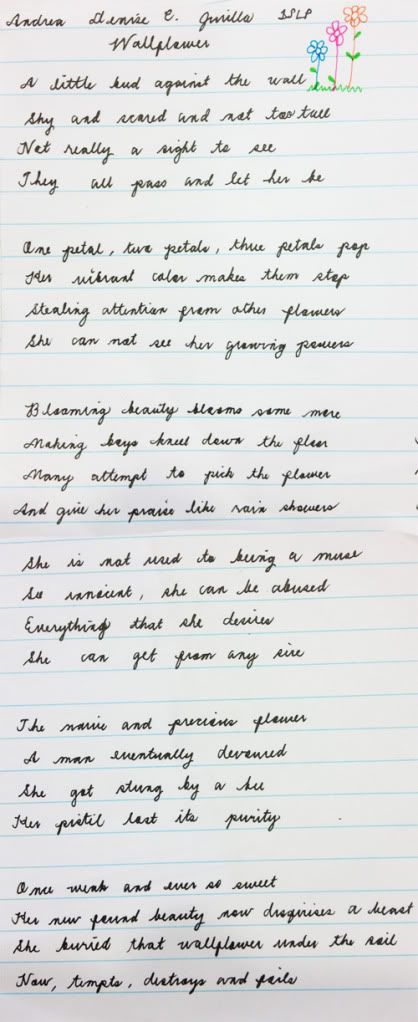 Andrea Denise C. Gorilla BSLP
Wallflower
A little bud against the wall
Shy and scared and not too tall
Not really a sight to see
They all pass and let her be
One petal, two petals, three petals pop
Her vibrant color makes them stop
Stealing attention from other flowers
She can not see her growing powers
Blooming beauty blooms some more
Making boys kneel down the floor
Many attempt to pick the flower
And give her praise like rain showers
She is not used to being a muse
So innocent, she can be abused
Everything that she desires
She can get from any sire
The naive and precious flower
A man eventually devoured
She got stung by a bee
Her pistil lost its purity
Once weak and ever so sweet
Her new found beauty now disguises a beast
She buried that wallflower under the soil
Now, tempts, destroys and foils